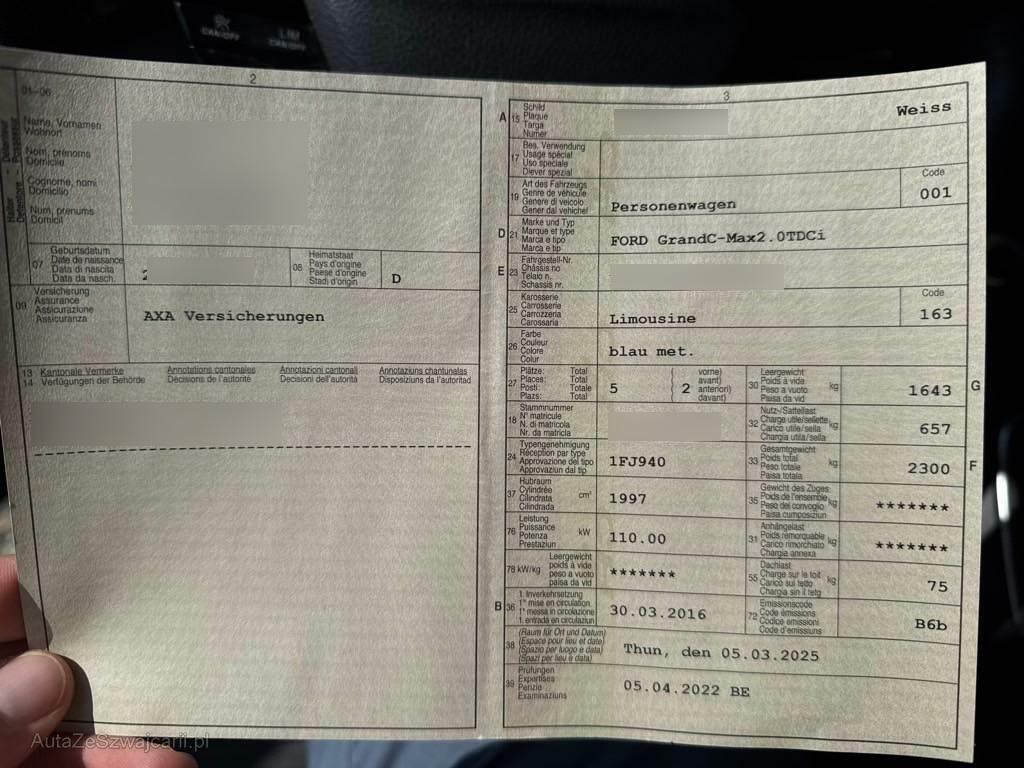 CAN-OFF
LIM
CAN-OFF
2
01-06
Name, Vornamen
Wohnort
Nom, prénoms
Domicile
Cognome, nomi
Domicilio
Num, prenums
Domicil
07
Geburtsdatum
Date de naissance
Data di nascita
Data da nasch.
08
Heimatstaat
Pays d'origine
Paese d'origine
Stadi d'origin
D
09
Versicherung
Assurance
Assicurazione
Assicuranza
AXA Versicherungen
13 Kantonale Vermerke Annotations cantonales Annotazioni cantonali Annotaziuns chantunalas
14 Verfügungen der Behörde Décisions de l'autorité Decisioni dell'autorità Disposiziuns da l'autoritad
3
A 15
Schild
Plaque
Targa
Numer
Weiss
17
Bes. Verwendung
Usage spécial
Uso speciale
Diever spezial
19
Art des Fahrzeugs
Genre de véhicule
Genere di veicolo
Gener dal vehichel
Personenwagen
Code
001
D 21
Marke und Typ
Marque et type
Marca e tipo
Marca e tip
FORD GrandC-Max2.0TDCi
E 23
Fahrgestell-Nr.
Châssis no
Telaio n.
Schassis nr.
25
Karosserie
Carrosserie
Carrozzeria
Carossaria
Limousine
Code
163
26
Farbe
Couleur
Colore
Colur
blau met.
27
Plätze: Total
Places: Total
Posti: Totale
Plazs: Total
5
2
vorne)
avant)
anteriori)
davant)
30
Leergewicht
Poids à vide
Peso a vuoto
Paisa da vid
kg
1643
G
18
Stammnummer
N° matricule
N. di matricola
Nr. da matricla
32
Nutz-/Sattellast
Charge utile/sellette
Carico utile/sella
Chargia utila/sella
kg
657
24
Typengenehmigung
Réception par type
Approvazione del tipo
Approvaziun dal tip
1FJ940
33
Gesamtgewicht
Poids total
Peso totale
Paisa totala
kg
2300
F
37
Hubraum
Cylindrée
Cilindrata
Cilindrada
cm³
1997
35
Gewicht des Zuges
Poids de l'ensemble
Peso del convoglio
Paisa cumposiziun
kg
*******
76
Leistung
Puissance
Potenza
Prestaziun
kW
110.00
31
Anhängelast
Poids remorquable
Carico rimorchiato
Chargia annexa
kg
*******
78 kW/kg
Leergewicht
poids à vide
peso a vuoto
paisa da vid
*******
55
Dachlast
Charge sur le toit
Carico sul tetto
Chargia sin il tetg
kg
75
B 36
1. Inverkehrsetzung
1re mise en circulation
1a messa in circolazione
1. entrada en circulaziun
30.03.2016
72
Emissionscode
Code émissions
Codice emissioni
Code d'emissiuns
B6b
38
(Raum für Ort und Datum)
(Espace pour lieu et date)
(Spazio per luogo e data)
(Spazi per lieu e data)
Thun, den 05.03.2025
39
Prüfungen
Expertises
Perizie
Examinaziuns
05.04.2022 BE
AutaZeSzwajcarii.pl